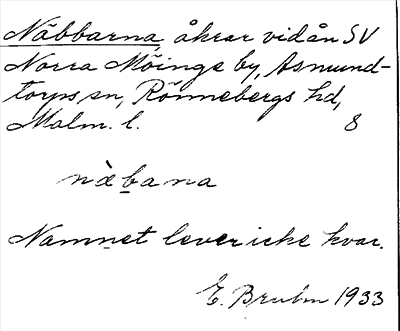 Näbbarna, åkrar vid ån SV
Norra Möinge by, Asmund-
torps sn, Rönnebergs hd,
Malm. l. 8
nàḇana
Namnet lever icke kvar.
E. Bruhn 1933